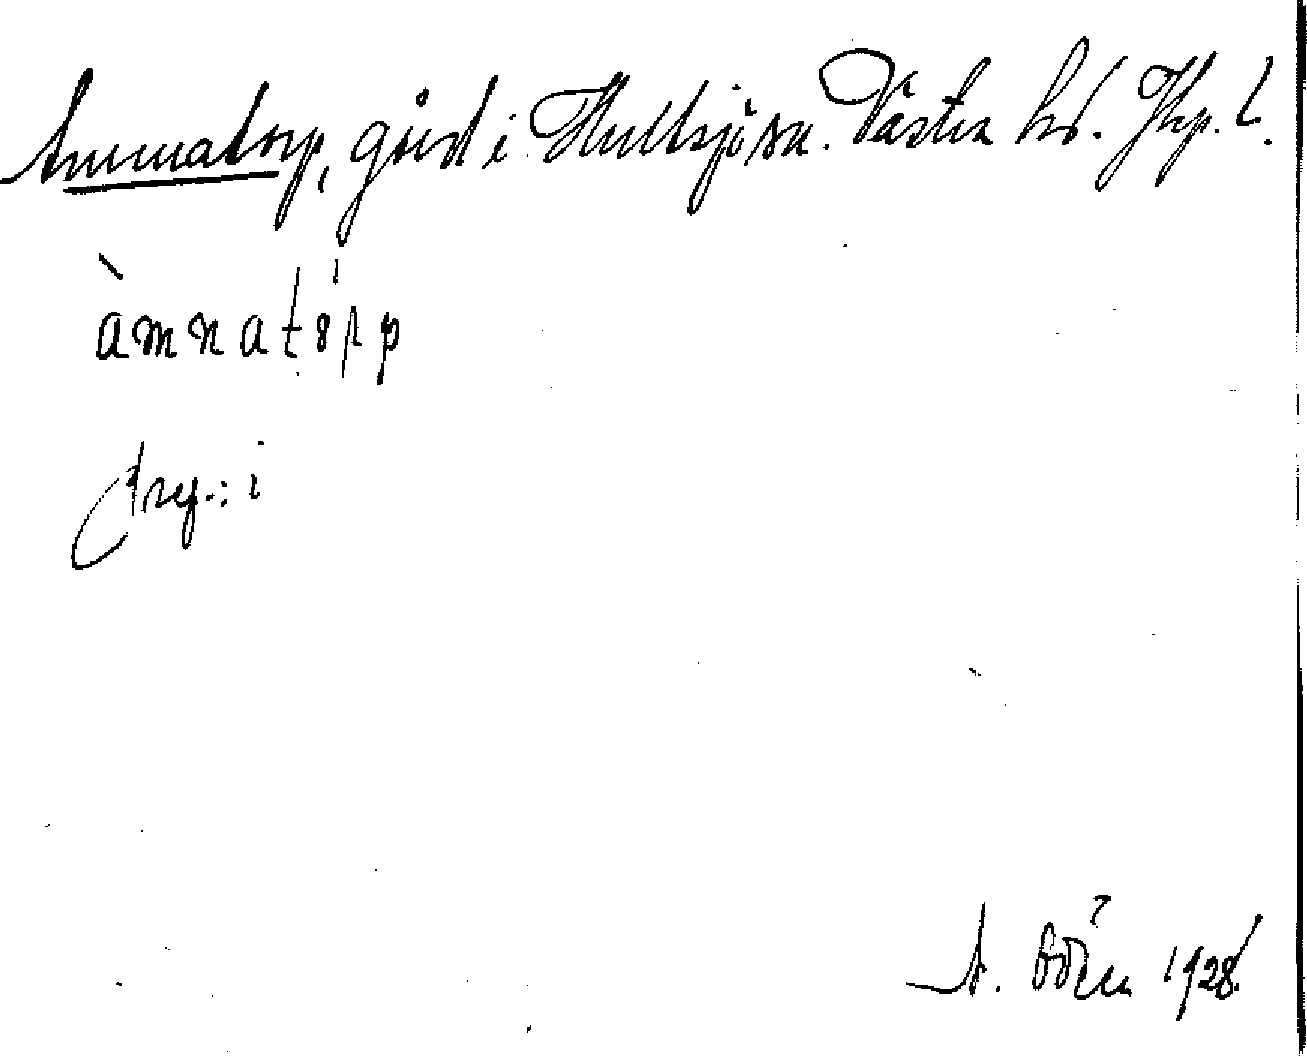 Ammatorp, gård i Hultsjö sn. Västra hd. Jkp. l.
àmnatórp
Prep.: i
A. Bdén 1928.